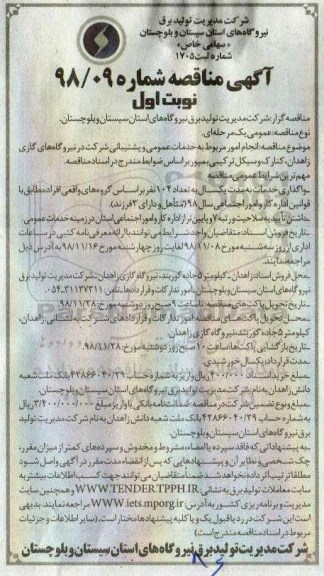 شرکت مدیریت تولید برق
نیروگاه‌های استان سیستان و بلوچستان
«سهامی خاص»
شماره ثبت ۱۷۰۵
آگهی مناقصه شماره ۹۸/۰۹
نوبت اول
مناقصه گزار: شرکت مدیریت تولید برق نیروگاه‌های استان سیستان و بلوچستان.
نوع مناقصه: عمومی یک مرحله‌ای.
موضوع مناقصه: انجام امور مربوط به خدمات عمومی و پشتیبانی شرکت در نیروگاه‌های گازی
زاهدان، کنارک و سیکل ترکیبی بمپور بر اساس ضوابط مندرج در اسناد مناقصه.
مهم‌ترین شرایط عمومی مناقصه
ـ واگذاری خدمات به مدت یکسال به تعداد ۱۰۴ نفر بر اساس گروه‌های واقعی افراد مطابق با
قوانین اداره کار و امور اجتماعی سال ۹۸ (متأهل و دارای ۲ فرزند).
ـ داشتن تأیید به صلاحیت رتبه ۷ و پایین‌تر از اداره کار و امور اجتماعی استان در زمینه خدمات عمومی
ـ تاریخ فروش اسناد: متقاضیان واجد شرایط می‌توانند با ارائه معرفی‌نامه کتبی در ساعات
اداری از روز سه‌شنبه مورخ ۹۸/۱۱/۰۸ لغایت روز چهارشنبه مورخ ۹۸/۱۱/۱۶ به آدرس ذیل
مراجعه نمایند.
ـ محل فروش اسناد: زاهدان ـ کیلومتر ۵ جاده گوربند، نیروگاه گازی زاهدان ـ شرکت مدیریت تولید برق
نیروگاه‌های استان سیستان و بلوچستان ـ امور تدارکات و قراردادها. تلفن: ۳۱۱۳۷۳۱۱-۰۵۴
ـ تاریخ تحویل پاکت‌های مناقصه: تا ساعت ۹ صبح روز دوشنبه مورخ ۹۸/۱۱/۲۸.
ـ محل تحویل پاکت‌های مناقصه: امور تدارکات و قراردادهای شرکت به نشانی: زاهدان،
کیلومتر ۵ جاده گوربند، نیروگاه گازی زاهدان.
ـ تاریخ بازگشایی پاکت‌ها: ساعت ۱۰ صبح روز دوشنبه مورخ: ۹۸/۱۱/۲۸.
ـ مدت قرارداد: یکسال خورشیدی.
ـ مبلغ خرید اسناد ۴۰۰/۰۰۰ ریال واریز به شماره حساب ۴۳۸۶۶۰۴۰/۲۹ بانک ملت شعبه
دانش زاهدان به نام شرکت مدیریت تولید برق نیروگاه‌های استان سیستان و بلوچستان.
ـ مبلغ و نوع تضمین شرکت در مناقصه: ضمانت‌نامه بانکی یا واریز مبلغ ۳/۴۰۰/۰۰۰/۰۰۰ ریال
به شماره حساب ۴۳۸۶۶۰۴۰/۲۹ بانک ملت شعبه دانش زاهدان به نام شرکت مدیریت تولید
برق نیروگاه‌های استان سیستان و بلوچستان.
ـ به پیشنهاداتی که فاقد سپرده یا امضاء، مشروط و مخدوش و سپرده‌های کمتر از میزان مقرر،
چک شخصی و نظایر آن و پیشنهادهایی که پس از انقضاء مدت مقرر در آگهی واصل شود
مطلقا ترتیب اثر داده نخواهد شد. ضمنا متقاضیان می‌توانند جهت کسب اطلاعات بیشتر به
سایت معاملات تولید برق به نشانی: WWW.TENDER.TPPH.IR و همچنین سایت
مدیریت و برنامه‌ریزی کشور به آدرس: www.iets.mporg.ir مراجعه نمایند. بدیهی
است این شرکت در رد یا قبول یک یا کلیه پیشنهادها مختار است. (سایر اطلاعات و جزئیات
مربوط در اسناد مناقصه مندرج است)
شرکت مدیریت تولید برق نیروگاه‌های استان سیستان و بلوچستان